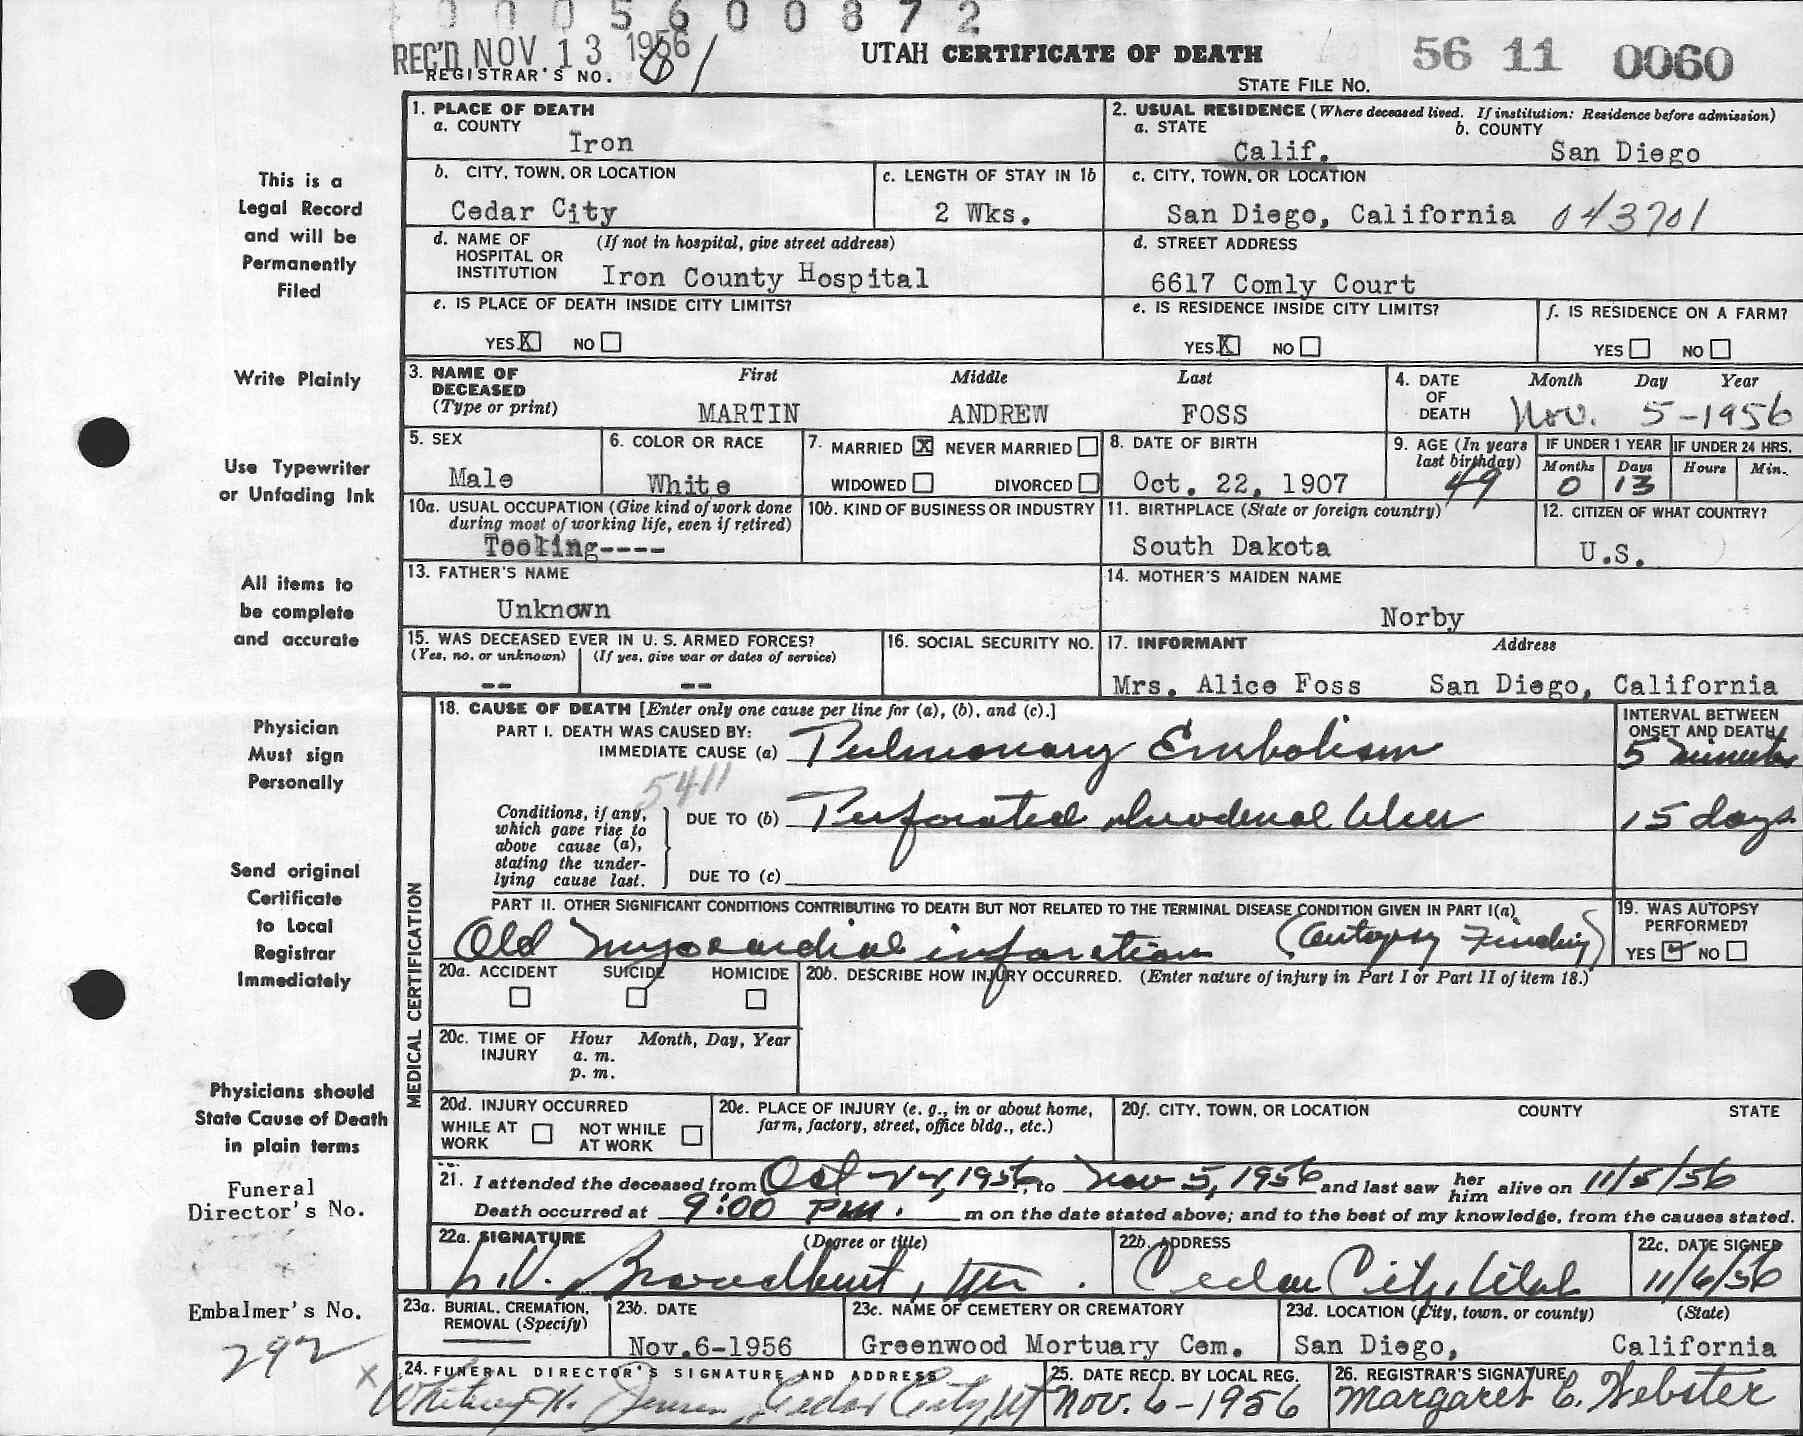 0 0 0 5 6 0 0 8 7 2
REC'D NOV. 13 1956
REGISTRAR'S NO. 61
UTAH CERTIFICATE OF DEATH
56 11 0060
STATE FILE NO.
This is a
Legal Record
and will be
Permanently
Filed
Write Plainly
Use Typewriter
or Unfading Ink
All items to
be complete
and accurate
Physician
Must sign
Personally
Send original
Certificate
to Local
Registrar
Immediately
Physicians should
State Cause of Death
in plain terms
Funeral
Director's No.
Embalmer's No.
292
1. PLACE OF DEATH
a. COUNTY
Iron
2. USUAL RESIDENCE (Where deceased lived. If institution: Residence before admission)
a. STATE b. COUNTY
Calif. San Diego
b. CITY, TOWN, OR LOCATION
Cedar City
c. LENGTH OF STAY IN 1b
2 Wks.
c. CITY, TOWN, OR LOCATION
San Diego, California 043701
d. NAME OF HOSPITAL OR INSTITUTION (If not in hospital, give street address)
Iron County Hospital
d. STREET ADDRESS
6617 Comly Court
e. IS PLACE OF DEATH INSIDE CITY LIMITS?
YES X NO
e. IS RESIDENCE INSIDE CITY LIMITS?
YES X NO
f. IS RESIDENCE ON A FARM?
YES NO
3. NAME OF DECEASED (Type or print)
First Middle Last
MARTIN ANDREW FOSS
4. DATE OF DEATH Month Day Year
Nov. 5-1956
5. SEX
Male
6. COLOR OR RACE
White
7. MARRIED X NEVER MARRIED
WIDOWED DIVORCED
8. DATE OF BIRTH
Oct. 22, 1907
9. AGE (In years last birthday)
49
IF UNDER 1 YEAR IF UNDER 24 HRS.
Months Days Hours Min.
0 13
10a. USUAL OCCUPATION (Give kind of work done during most of working life, even if retired)
Tooling----
10b. KIND OF BUSINESS OR INDUSTRY
11. BIRTHPLACE (State or foreign country)
South Dakota
12. CITIZEN OF WHAT COUNTRY?
U.S.
13. FATHER'S NAME
Unknown
14. MOTHER'S MAIDEN NAME
Norby
15. WAS DECEASED EVER IN U. S. ARMED FORCES?
(Yes, no, or unknown) (If yes, give war or dates of service)
-- --
16. SOCIAL SECURITY NO.
17. INFORMANT Address
Mrs. Alice Foss San Diego, California
MEDICAL CERTIFICATION
18. CAUSE OF DEATH [Enter only one cause per line for (a), (b), and (c).]
PART I. DEATH WAS CAUSED BY:
IMMEDIATE CAUSE (a) Pulmonary Embolism
INTERVAL BETWEEN ONSET AND DEATH
5 minutes
5411
Conditions, if any, which gave rise to above cause (a), stating the underlying cause last.
DUE TO (b) Perforated duodenal Ulcer
15 days
DUE TO (c)
PART II. OTHER SIGNIFICANT CONDITIONS CONTRIBUTING TO DEATH BUT NOT RELATED TO THE TERMINAL DISEASE CONDITION GIVEN IN PART I(a)
Old myocardial infarction (Autopsy Finding)
19. WAS AUTOPSY PERFORMED?
YES NO
20a. ACCIDENT SUICIDE HOMICIDE
20b. DESCRIBE HOW INJURY OCCURRED. (Enter nature of injury in Part I or Part II of item 18.)
20c. TIME OF INJURY Hour Month, Day, Year
a. m.
p. m.
20d. INJURY OCCURRED
WHILE AT WORK NOT WHILE AT WORK
20e. PLACE OF INJURY (e. g., in or about home, farm, factory, street, office bldg., etc.)
20f. CITY, TOWN, OR LOCATION COUNTY STATE
21. I attended the deceased from Oct 1956, to Nov 5, 1956 and last saw her him alive on 11/5/56
Death occurred at 9:00 PM. m on the date stated above; and to the best of my knowledge, from the causes stated.
22a. SIGNATURE (Degree or title)
L.V. Broadbent,
22b. ADDRESS
Cedar City, Utah
22c. DATE SIGNED
11/6/56
23a. BURIAL, CREMATION, REMOVAL (Specify)
23b. DATE
Nov.6-1956
23c. NAME OF CEMETERY OR CREMATORY
Greenwood Mortuary Cem.
23d. LOCATION (City, town, or county) (State)
San Diego, California
24. FUNERAL DIRECTOR'S SIGNATURE AND ADDRESS
x Whitney H. Jensen, Cedar City, Ut
25. DATE RECD. BY LOCAL REG.
Nov. 6-1956
26. REGISTRAR'S SIGNATURE
Margaret C. Webster